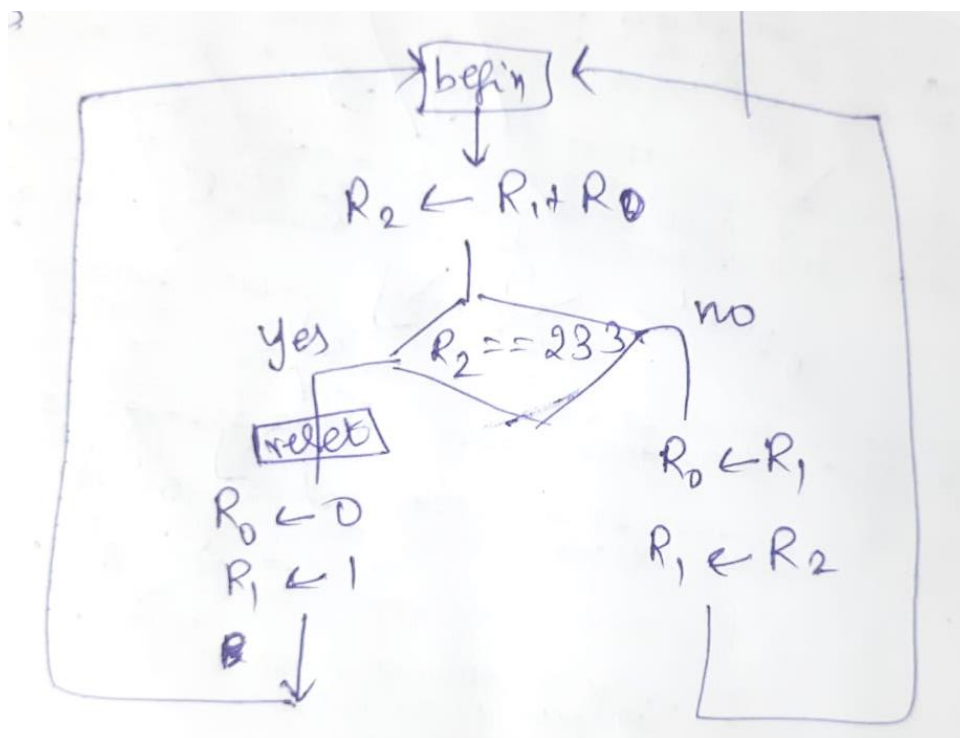 begin
R₂ ← R₁ + R₀
yes
R₂ == 233
no
reset
R₀ ← 0
R₁ ← 1
R₀ ← R₁
R₁ ← R₂